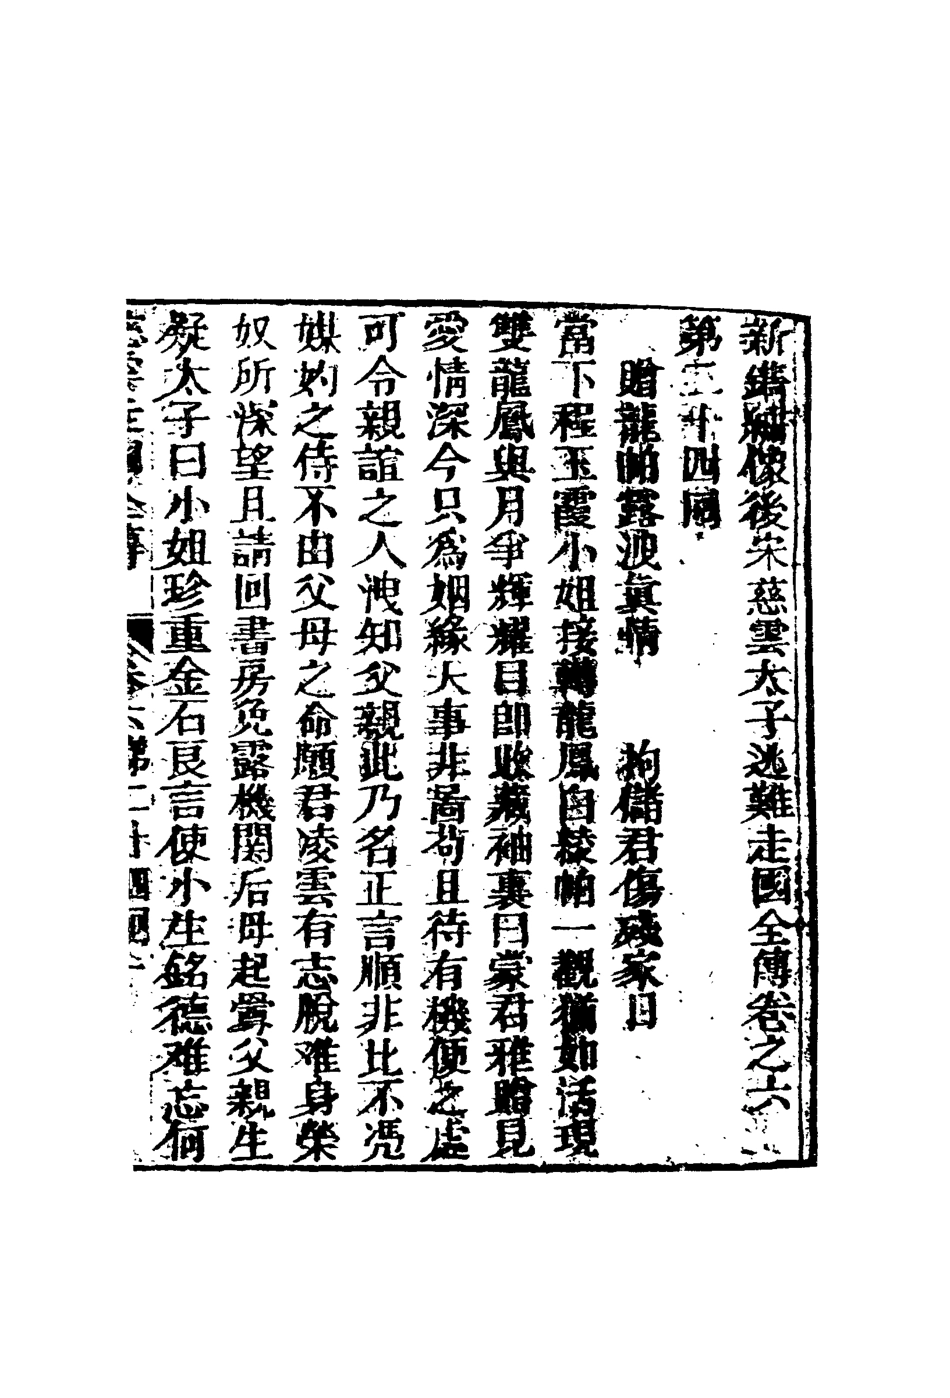 新鐫繡像後宋慈雲太子逃難走國全傳卷之六
第二十四回
贈龍帕露洩真情　拘儲君傷殘家日
當下程玉霞小姐接轉龍鳳白綾帕一觀猶如活現
雙龍鳳與月爭輝耀目即收藏袖裏曰蒙君雅贈見
愛情深今只為姻緣大事非啻苟且待有機便之處
可令親誼之人洩知父親此乃名正言順非比不憑
媒妁之待不由父母之命願君凌雲有志脫难身榮
奴所深望且請回書房免露機関后母起釁父親生
疑太子曰小姐珍重金石良言使小生銘德难忘何
慈雲走國全傳　卷六第二十四回　一